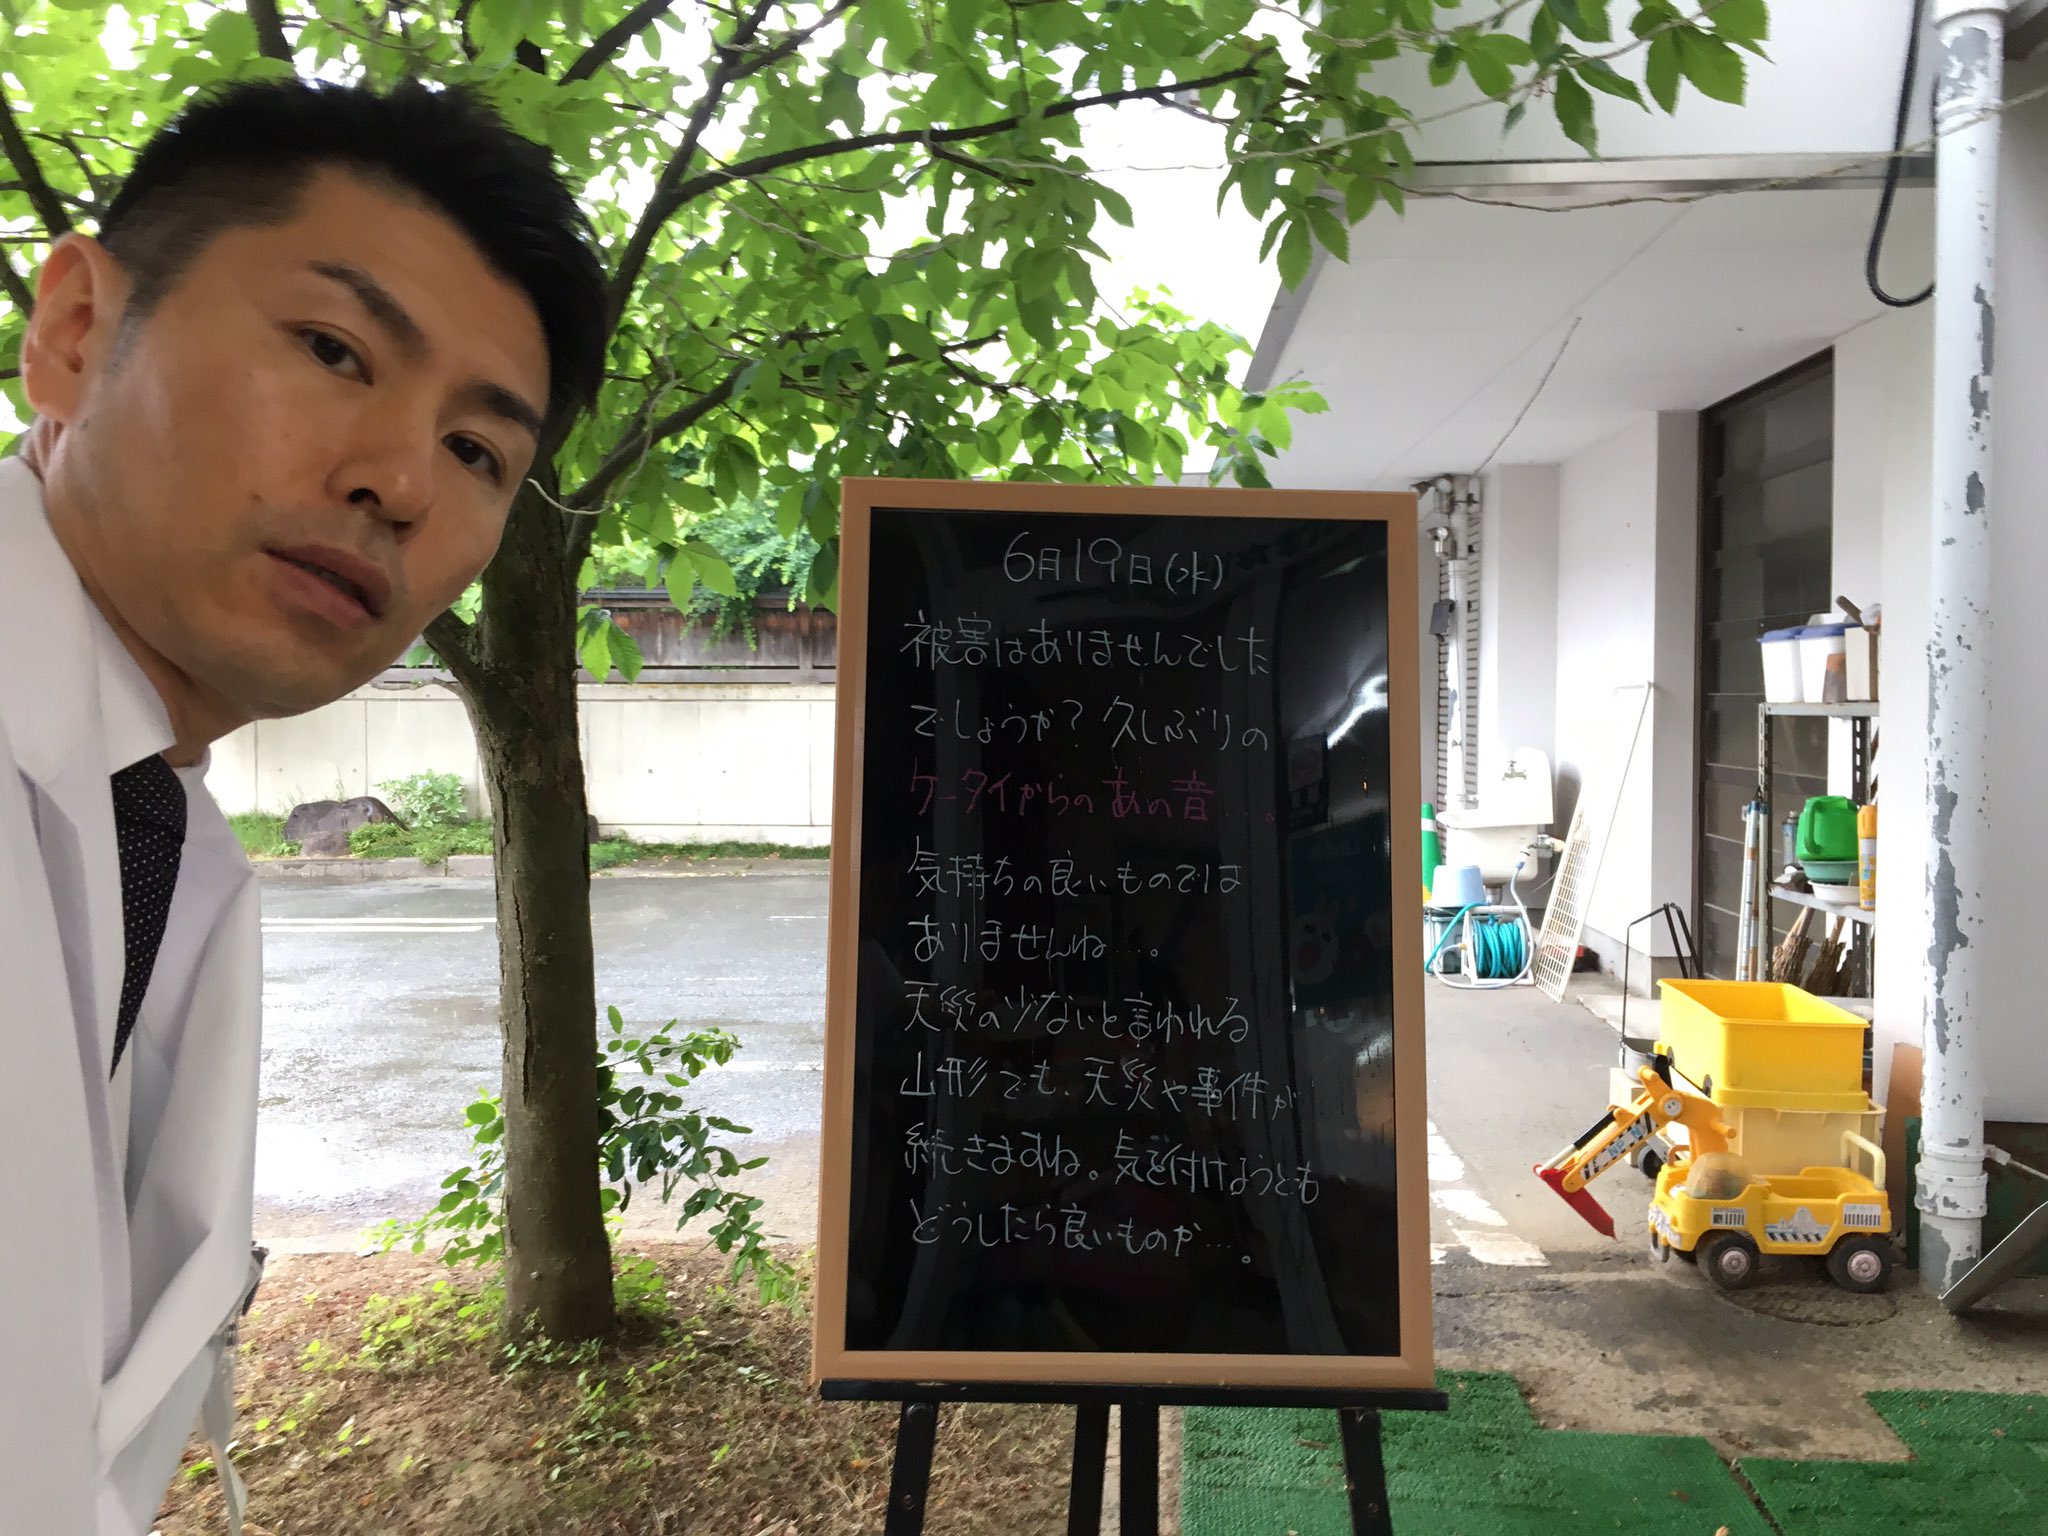 6月19日(水)
被害はありませんでした
でしょうか？久しぶりの
ケータイからのあの音…。
気持ちの良いものでは
ありませんね…。
天災の少ないと言われる
山形でも、天災や事件が
続きますね。気を付けようとも
どうしたら良いものか…。